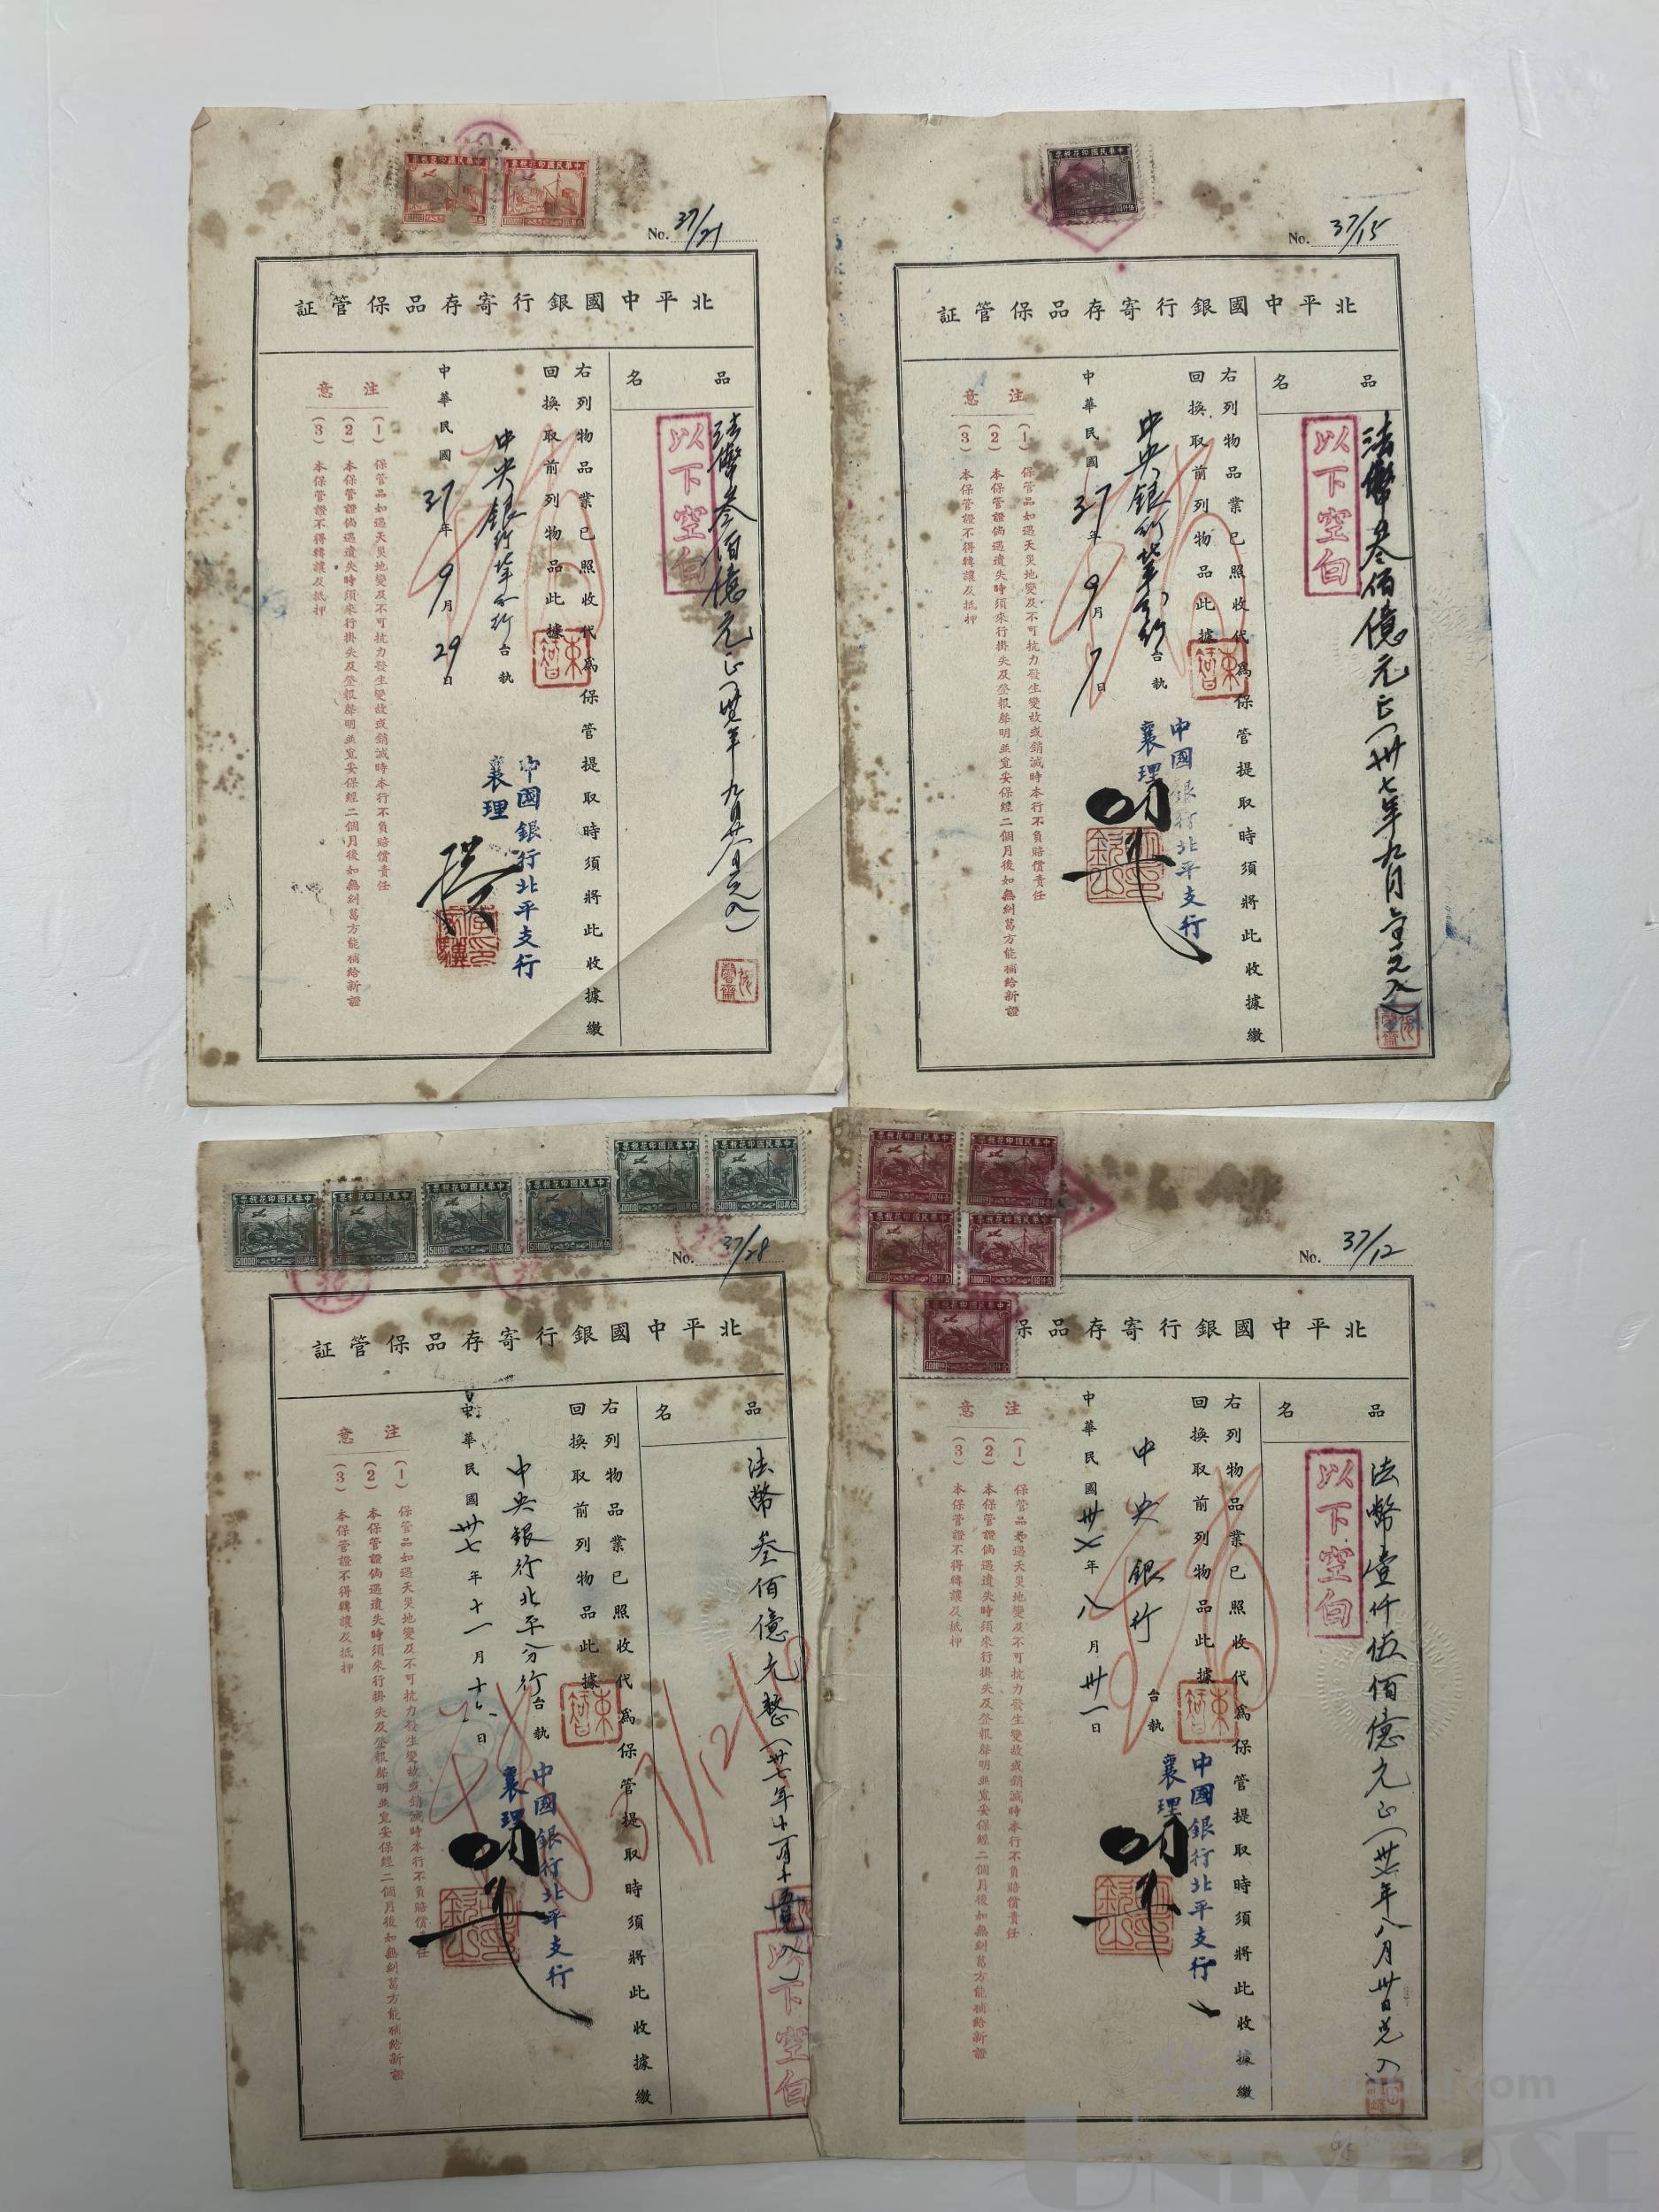 中華民國印花稅票
中華民國印花稅票
No. 37/21
北平中國銀行寄存品保管証
品名
法幣叁佰億元正
以下空白
右列物品業已照收代為保管提取時須將此收據繳
回換取前列物品此據
中央銀行北平分行台執
中國銀行北平支行
襄理
中華民國37年9月29日
注意
(1) 保管品如遇天災地變及不可抗力發生變故或銷滅時本行不負賠償責任
(2) 本保管證倘遇遺失時須來行掛失及登報聲明並覓妥保經二個月後如無糾葛方能補給新證
(3) 本保管證不得轉讓及抵押
中華民國印花稅票
No. 37/15
北平中國銀行寄存品保管証
品名
法幣叁佰億元正(卅七年九月
以下空白
右列物品業已照收代為保管提取時須將此收據繳
回換取前列物品此據
中央銀行北平分行台執
中國銀行北平支行
襄理
中華民國37年9月7日
注意
(1) 保管品如遇天災地變及不可抗力發生變故或銷滅時本行不負賠償責任
(2) 本保管證倘遇遺失時須來行掛失及登報聲明並覓妥保經二個月後如無糾葛方能補給新證
(3) 本保管證不得轉讓及抵押
中華民國印花稅票
50000
中華民國印花稅票
中華民國印花稅票
50000
中華民國印花稅票
50000
中華民國印花稅票
50000
中華民國印花稅票
50000
No. 37/28
北平中國銀行寄存品保管証
品名
法幣叁佰億元整(卅七年十一月十五日入)
以下空白
右列物品業已照收代為保管提取時須將此收據繳
回換取前列物品此據
中央銀行北平分行台執
中國銀行北平支行
襄理
中華民國卅七年十一月十 日
注意
(1) 保管品如遇天災地變及不可抗力發生變故或銷滅時本行不負賠償責任
(2) 本保管證倘遇遺失時須來行掛失及登報聲明並覓妥保經二個月後如無糾葛方能補給新證
(3) 本保管證不得轉讓及抵押
中華民國印花稅票
中華民國印花稅票
中華民國印花稅票
中華民國印花稅票
中華民國印花稅票
No. 37/12
北平中國銀行寄存品保
品名
法幣壹仟伍佰億元正(卅七年八月卅日 入)
以下空白
右列物品業已照收代為保管提取時須將此收據繳
回換取前列物品此據
中央銀行台執
中國銀行北平支行
襄理
中華民國卅七年八月卅一日
注意
(1) 保管品如遇天災地變及不可抗力發生變故或銷滅時本行不負賠償責任
(2) 本保管證倘遇遺失時須來行掛失及登報聲明並覓妥保經二個月後如無糾葛方能補給新證
(3) 本保管證不得轉讓及抵押
UNIVERSE